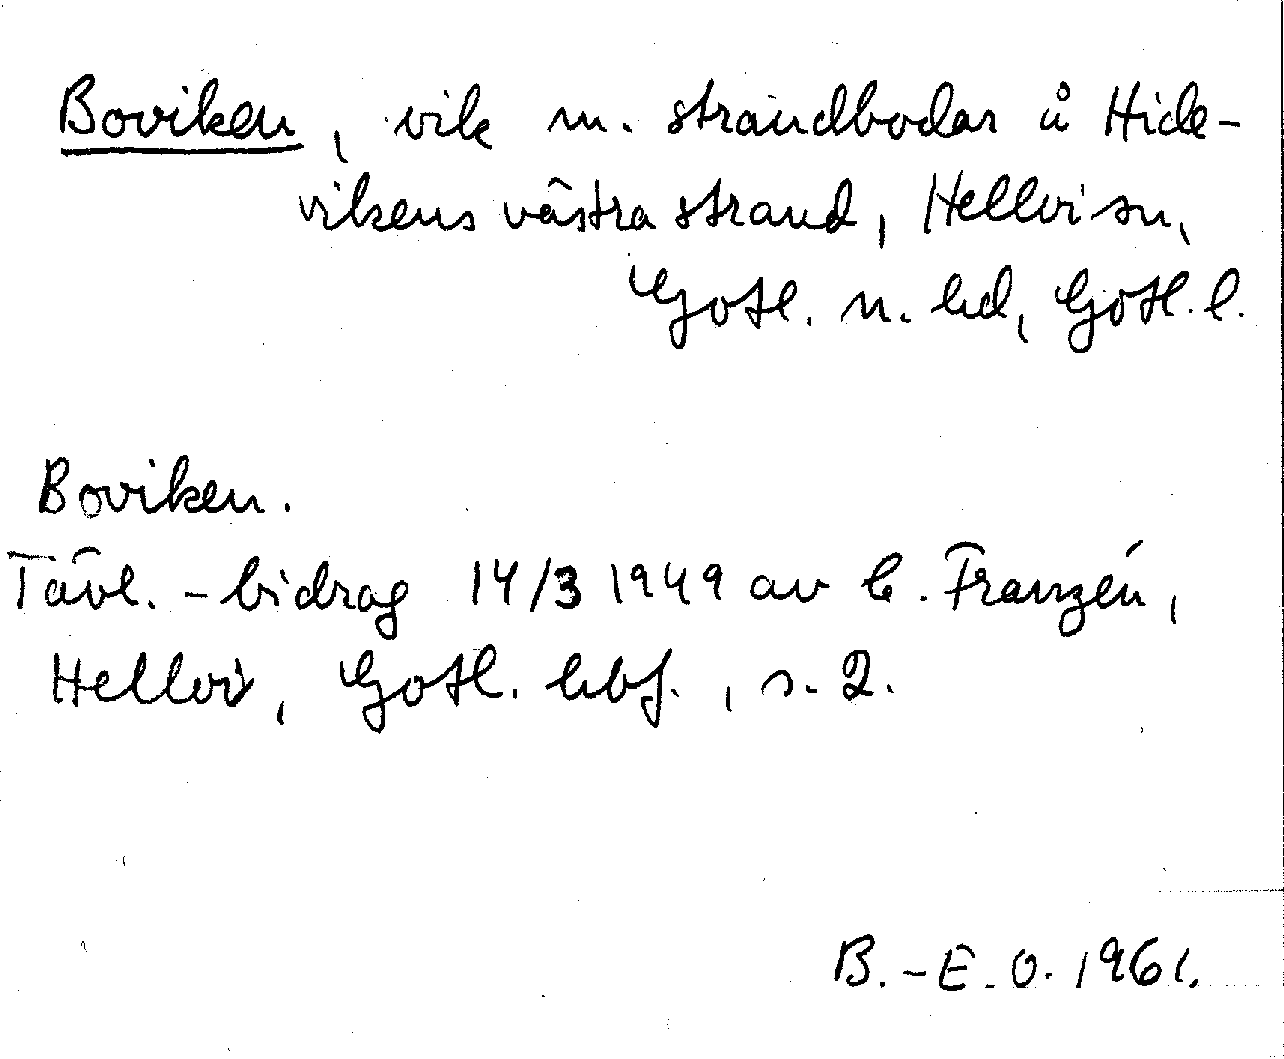 Boviken, vik m. strandbodar å Hide-
vikens västra strand, Hellvi sn,
Gotl. n. hd, Gotl. l.
Boviken.
Tävl. - bidrag 14/3 1949 av C. Franzén,
Hellvi, Gotl. hbf., s. 2.
B.-E. O. 1961.